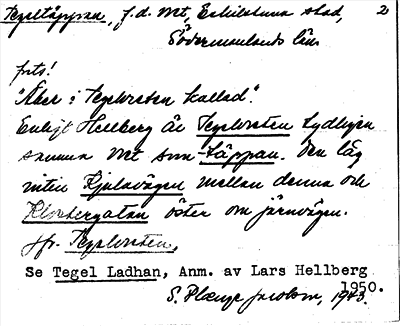 Tegeltäppan, f.d. vret, Eskilstuna stad, 2
Södermanlands län.
forts!
"Åker i Tegelvreten kallad".
Enligt Hellberg är Tegelvreten tydligen
samma vret som -täppan. Den låg
intill Kjulavägen mellan denna och
Klostergatan öster om järnvägen.
jfr. Tegelvreten,
Se Tegel Ladhan, Anm. av Lars Hellberg
1950.
S. Plænge Jacobson, 1943.